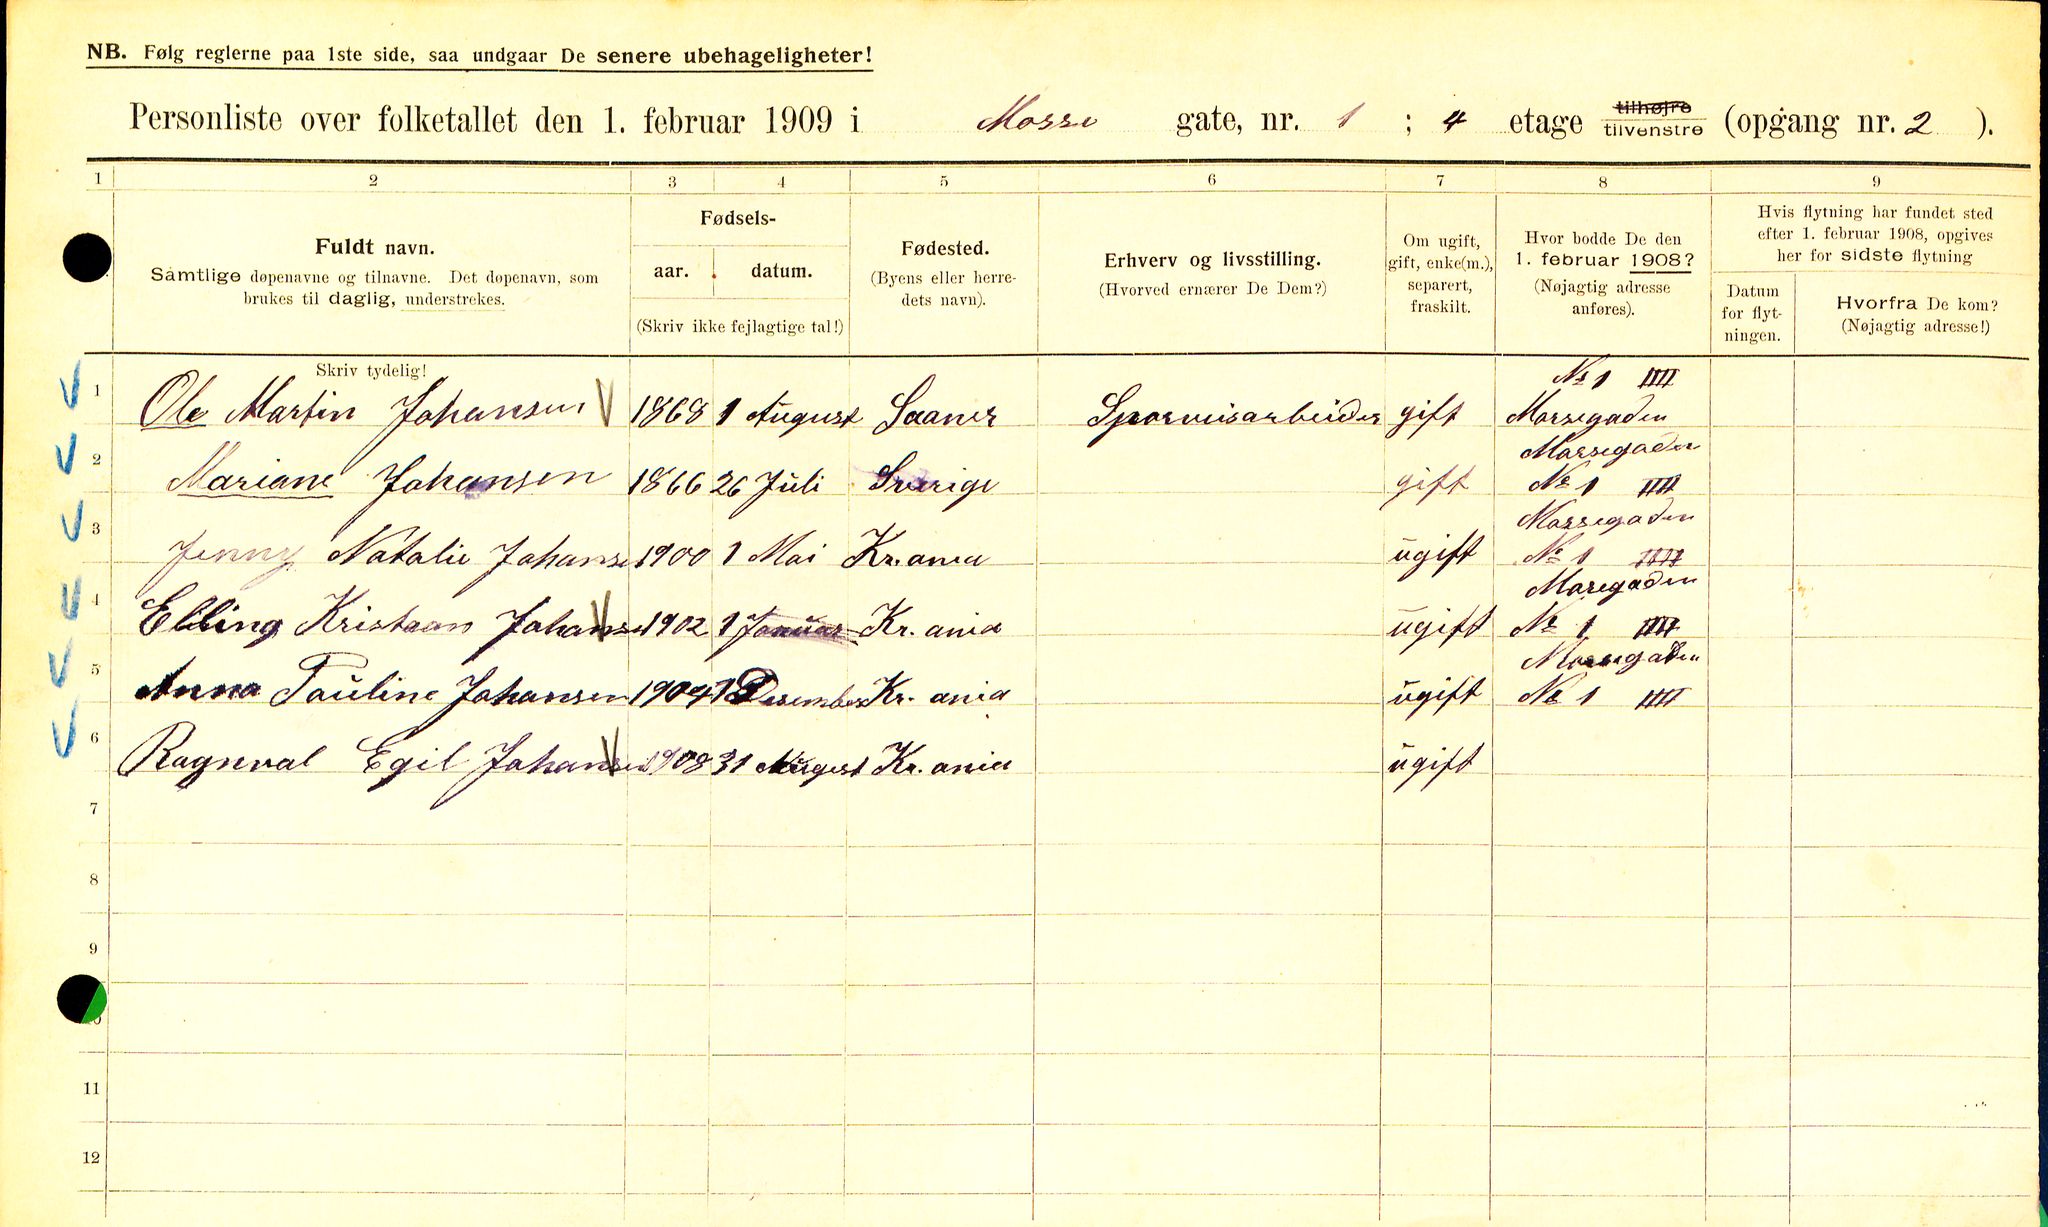 NB. Følg reglerne paa 1ste side, saa undgaar De senere ubehageligheter!
Personliste over folketallet den 1. februar 1909 i Mosse gate, nr. 1 ; 4 etage tilhøjre tilvenstre (opgang nr. 2 ).
1 2 3 4 5 6 7 8 9
Fuldt navn.
Samtlige døpenavne og tilnavne. Det døpenavn, som
brukes til daglig, understrekes.
Skriv tydelig!
Fødsels-
aar. datum.
(Skriv ikke fejlagtige tal!)
Fødested.
(Byens eller herre-
dets navn).
Erhverv og livsstilling.
(Hvorved ernærer De Dem?)
Om ugift,
gift, enke(m.),
separert,
fraskilt.
Hvor bodde De den
1. februar 1908?
(Nøjagtig adresse
anføres).
Hvis flytning har fundet sted
efter 1. februar 1908, opgives
her for sidste flytning
Datum
for flyt-
ningen.
Hvorfra De kom?
(Nøjagtig adresse!)
1 Ole Martin Johansen 1868 1 August Saaner Sporveisarbeider gift No 1 IIII Mossegaden
2 Mariane Johansen 1866 26 Juli Sverige gift Mossegaden No 1 IIII
3 Jenny Natalie Johanse 1900 1 Mai Kr. ania ugift Mossegaden No 1 IIII
4 Elling Kristian Johanse 1902 1 Januar Kr. ania ugift Mosegaden No 1 IIII
5 Anna Pauline Johansen 1904 Desember Kr. ania ugift Mossegaden No 1 IIII
6 Ragnval Egil Johanse 1908 31 August Kr. ania ugift
7
8
9
11
12